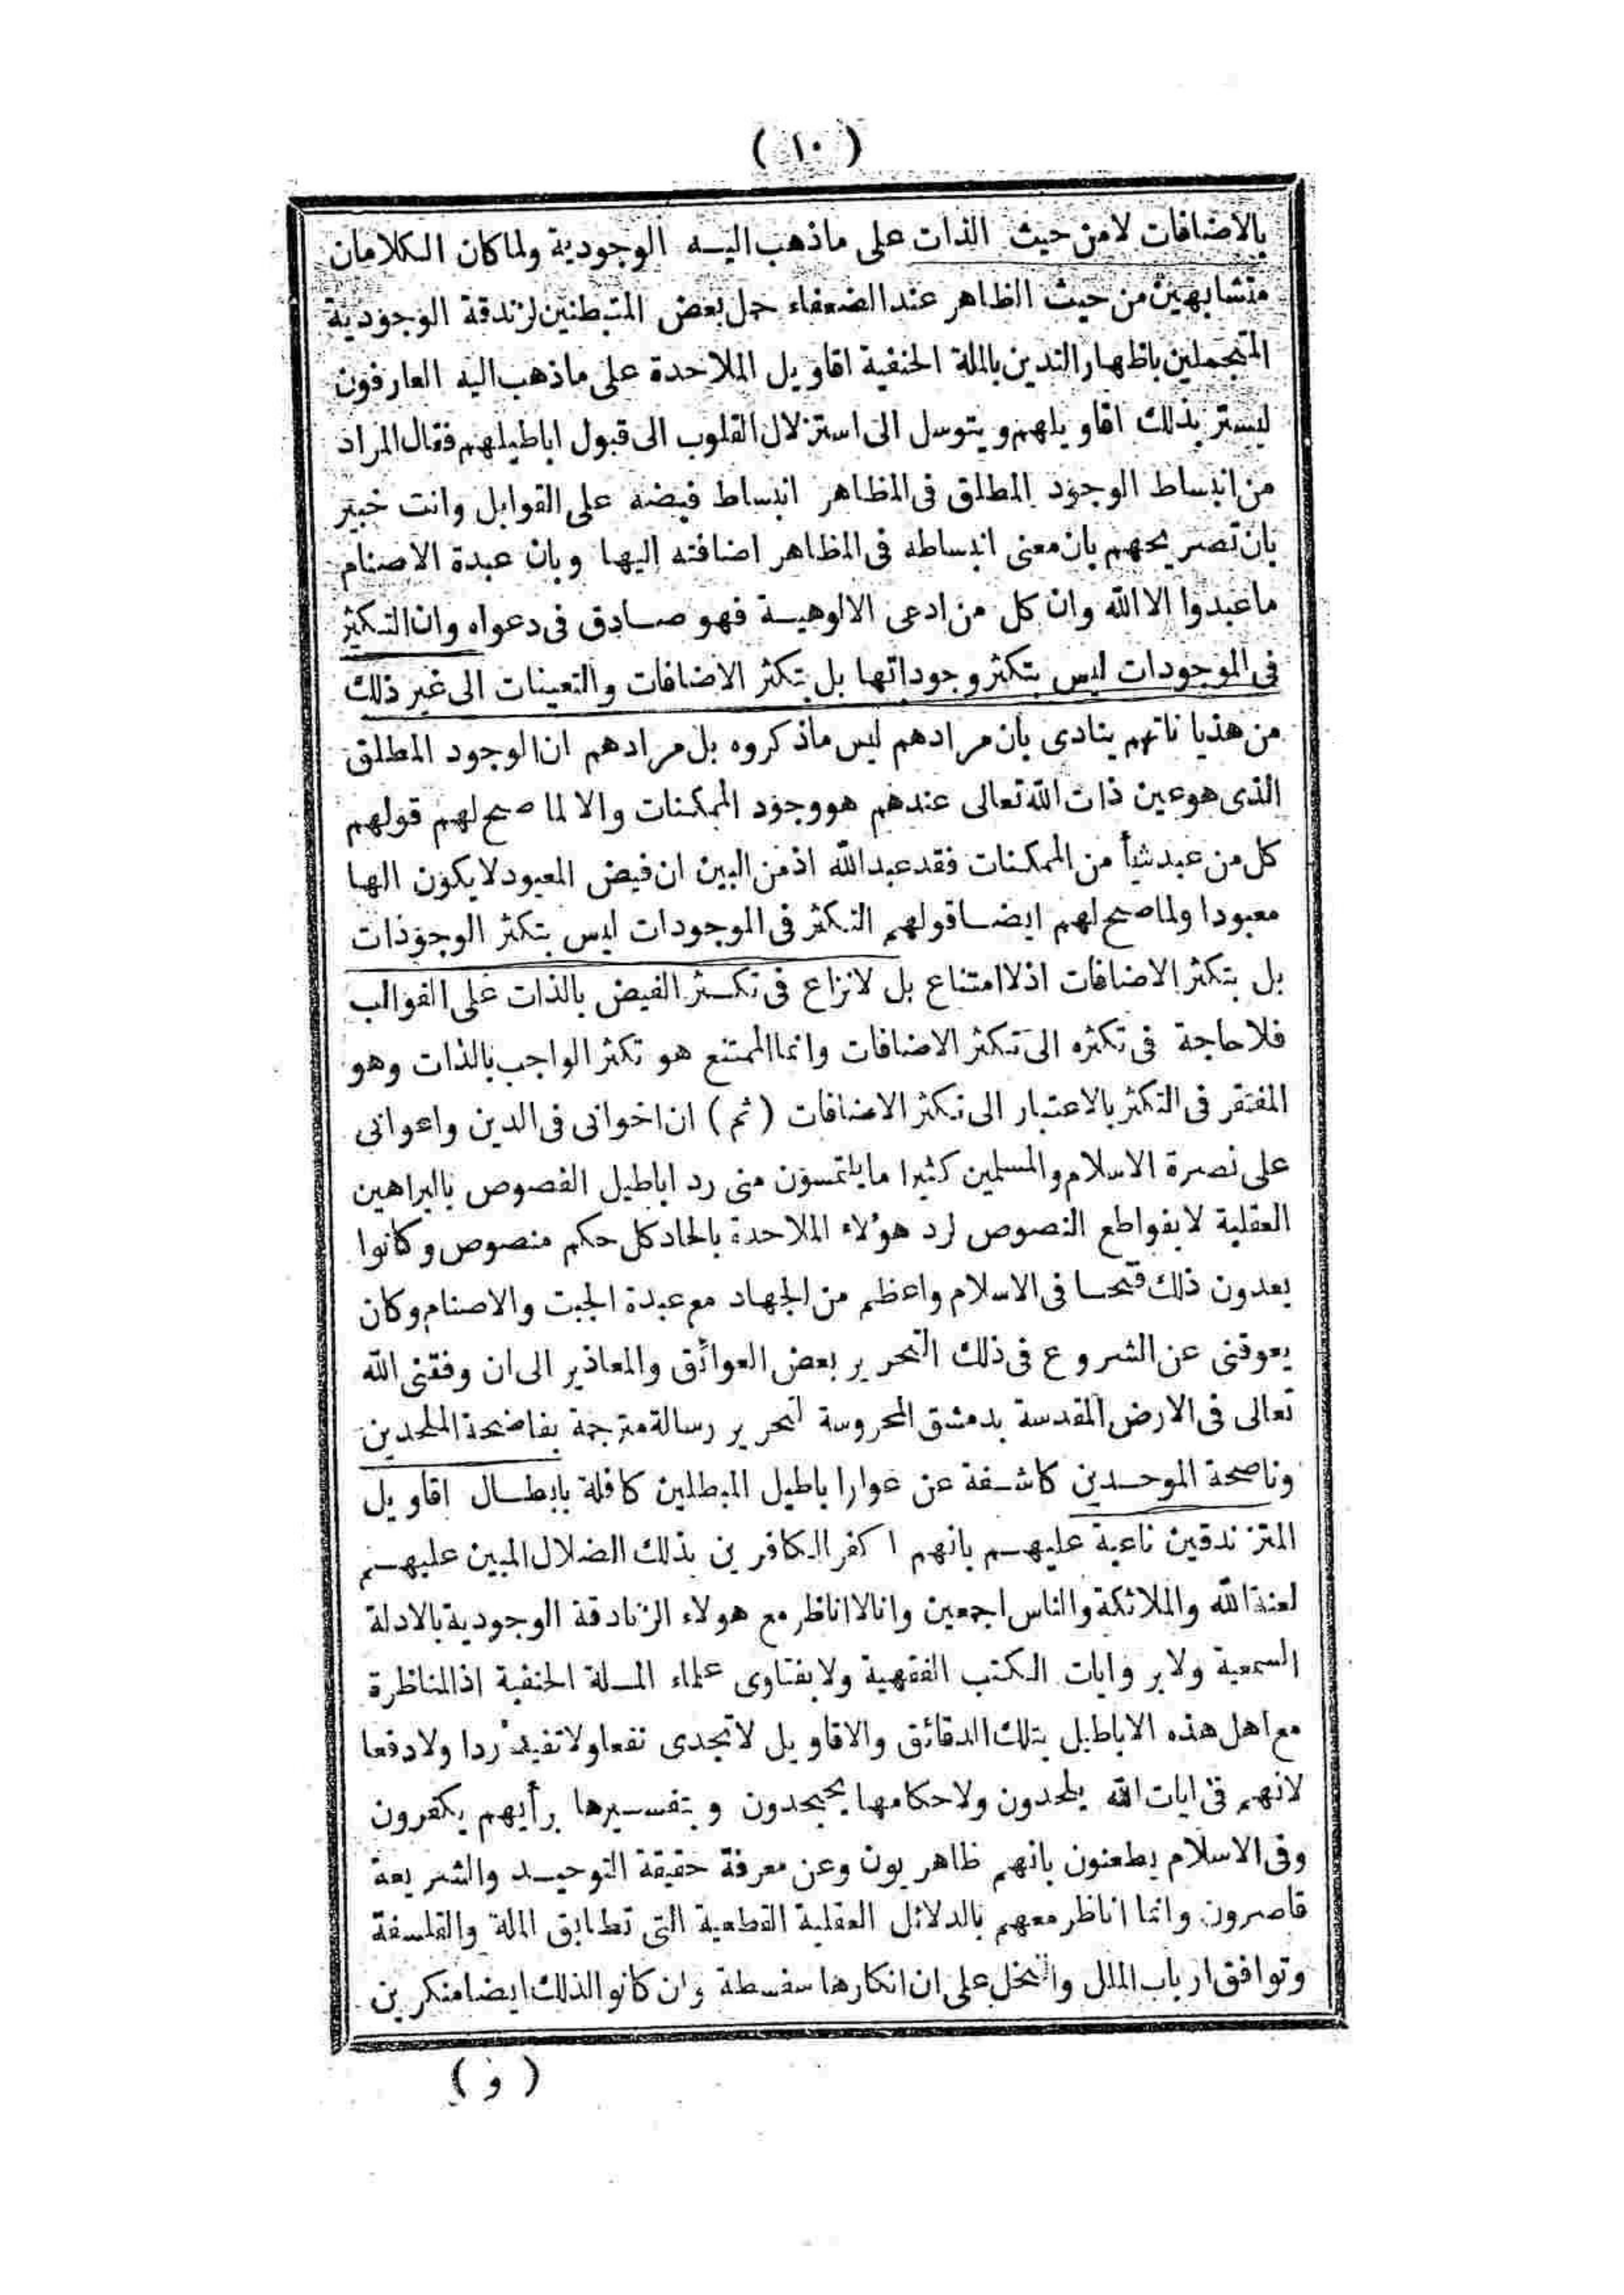 ( ١٠ )
بالاضافات لا من حيث الذات على ما ذهب اليه الوجودية ولما كان الكلامان
متشابهين من حيث الظاهر عند الضعفاء حمل بعض المتبطنين لزندقة الوجودية
المتجملين باظهار التدين بالملة الحنفية اقاويل الملاحدة على ما ذهب اليه العارفون
ليستر بذلك اقاويلهم ويتوسل الى استزلال القلوب الى قبول اباطيلهم فقال المراد
من انبساط الوجود المطلق فى المظاهر انبساط فيضه على القوابل وانت خبير
بان تصريحهم بان معنى انبساطه فى المظاهر اضافته اليها وبان عبدة الاصنام
ما عبدوا الا الله وان كل من ادعى الالوهية فهو صادق فى دعواه وان التكثر
فى الموجودات ليس بتكثر وجوداتها بل بتكثر الاضافات والتعينات الى غير ذلك
من هذياناتهم ينادى بان مرادهم ليس ماذكروه بل مرادهم ان الوجود المطلق
الذى هو عين ذات الله تعالى عندهم هو وجود الممكنات والا لما صح لهم قولهم
كل من عبد شيأ من الممكنات فقد عبد الله اذ من البين ان فيض المعبود لا يكون الها
معبودا ولما صح لهم ايضا قولهم التكثر فى الموجودات ليس بتكثر الوجودات
بل بتكثر الاضافات اذ لا امتناع بل لا نزاع فى تكثر الفيض بالذات على القوالب
فلا حاجة فى تكثره الى تكثر الاضافات وانما الممتنع هو تكثر الواجب بالذات وهو
المفتقر فى التكثر بالاعتبار الى تكثر الاضافات (ثم) ان اخوانى فى الدين واعوانى
على نصرة الاسلام والمسلمين كثيرا ما يلتمسون منى رد اباطيل الفصوص بالبراهين
العقلية لا بقواطع النصوص لرد هؤلاء الملاحدة بالحاد كل حكم منصوص وكانوا
يعدون ذلك فتحا فى الاسلام واعظم من الجهاد مع عبدة الجبت والاصنام وكان
يعوقنى عن الشروع فى ذلك التحرير بعض العوائق والمعاذير الى ان وفقنى الله
تعالى فى الارض المقدسة بدمشق المحروسة لتحرير رسالة مترجمة بفاضحة الملحدين
وناصحة الموحدين كاشفة عن عوار اباطيل المبطلين كافلة بابطال اقاويل
المتزندقين ناعية عليهم بانهم اكفر الكافرين بذلك الضلال المبين عليهم
لعنة الله والملائكة والناس اجمعين وانا لا اناظر مع هولاء الزنادقة الوجودية بالادلة
السمعية ولا بروايات الكتب الفقهية ولا بفتاوى علماء الملة الحنفية اذ المناظرة
مع اهل هذه الاباطيل بتلك الدقائق والاقاويل لا تجدى نفعا ولا تفيد ردا ولا دفعا
لانهم فى ايات الله يلحدون ولاحكامها يجحدون وبتفسيرها برأيهم يكفرون
وفى الاسلام يطعنون بانهم ظاهريون وعن معرفة حقيقة التوحيد والشريعة
قاصرون وانما اناظر معهم بالدلائل العقلية القطعية التى تطابق الملة والفلسفة
وتوافق ارباب الملل والنحل على ان انكارها سفسطة وان كانوا لذلك ايضا منكرين
( و )